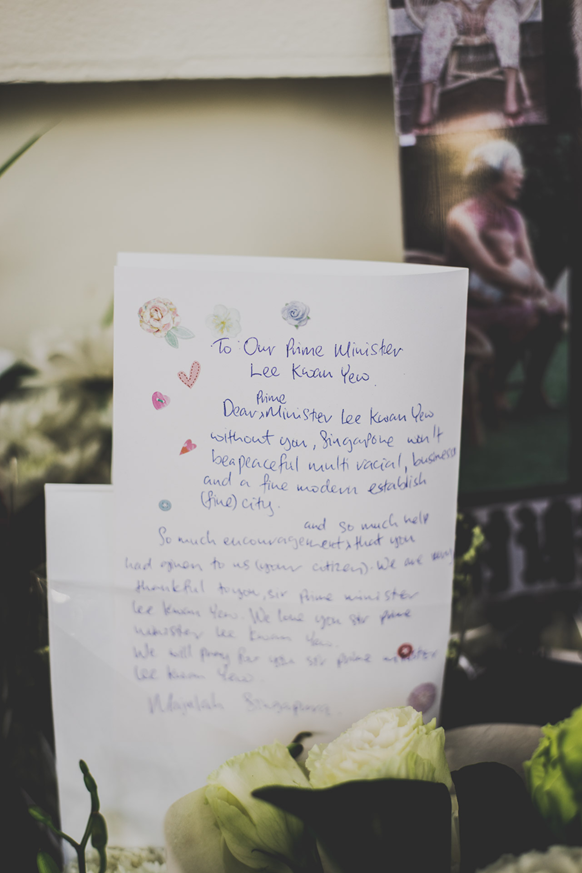 To Our Prime Minister
Lee Kwan Yew.
Prime
Dear, Minister Lee Kwan Yew
without you, Singapore won't
be a peaceful multi racial, business
and a fine modern establish
(fine) city.
and so much help
So much encouragement, that you
had given to us (your citizen). We are
thankful to you, sir Prime minister
Lee Kwan Yew. We love you sir prime
minister Lee Kwan Yew.
We will pray for you sir prime minister
Lee Kwan Yew.
Majulah Singapura.